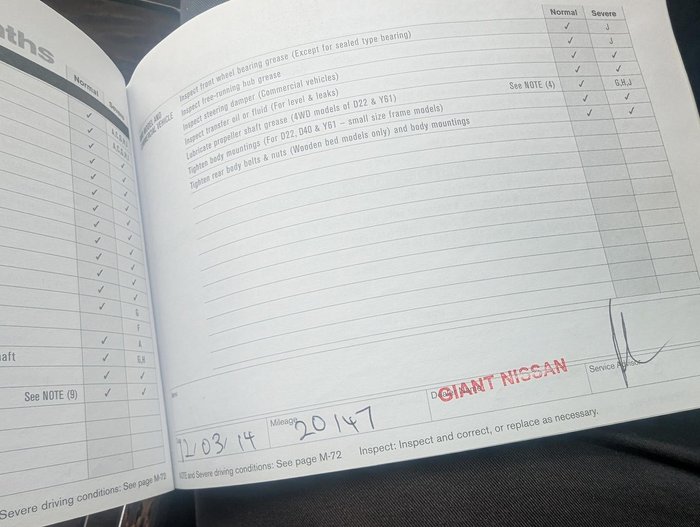 nths
Normal
Severe
A
G,H
See NOTE (9)
Severe driving conditions: See page M-72
Normal Severe
Inspect front wheel bearing grease (Except for sealed type bearing) ✓ J
Inspect free-running hub grease ✓ J
Inspect steering damper (Commercial vehicles) ✓ ✓
Inspect transfer oil or fluid (For level & leaks) ✓ ✓
Lubricate propeller shaft grease (4WD models of D22 & Y61) See NOTE (4) ✓ G,H,J
Tighten body mountings (For D22, D40 & Y61 – small size frame models) ✓ ✓
Tighten rear body bolts & nuts (Wooden bed models only) and body mountings ✓ ✓
12/03/14
Mileage
20147
GIANT NISSAN
Service
NOTE and Severe driving conditions: See page M-72 Inspect: Inspect and correct, or replace as necessary.